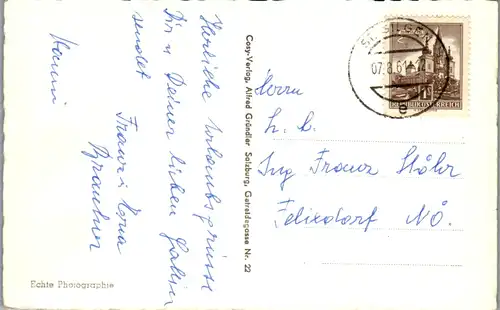 Herzliche Urlaubsgrüsse
Dir u Deiner lieben Gattin
sendet
Franz i Erna
Hanni
Cosy-Verlag, Alfred Gründler Salzburg, Getreidegasse Nr. 22
Echte Photographie
ST. GILGEN
07.8.61
REPUBLIK ÖSTERREICH
Herrn
Ing Franz Stöhr
Felixdorf NÖ.